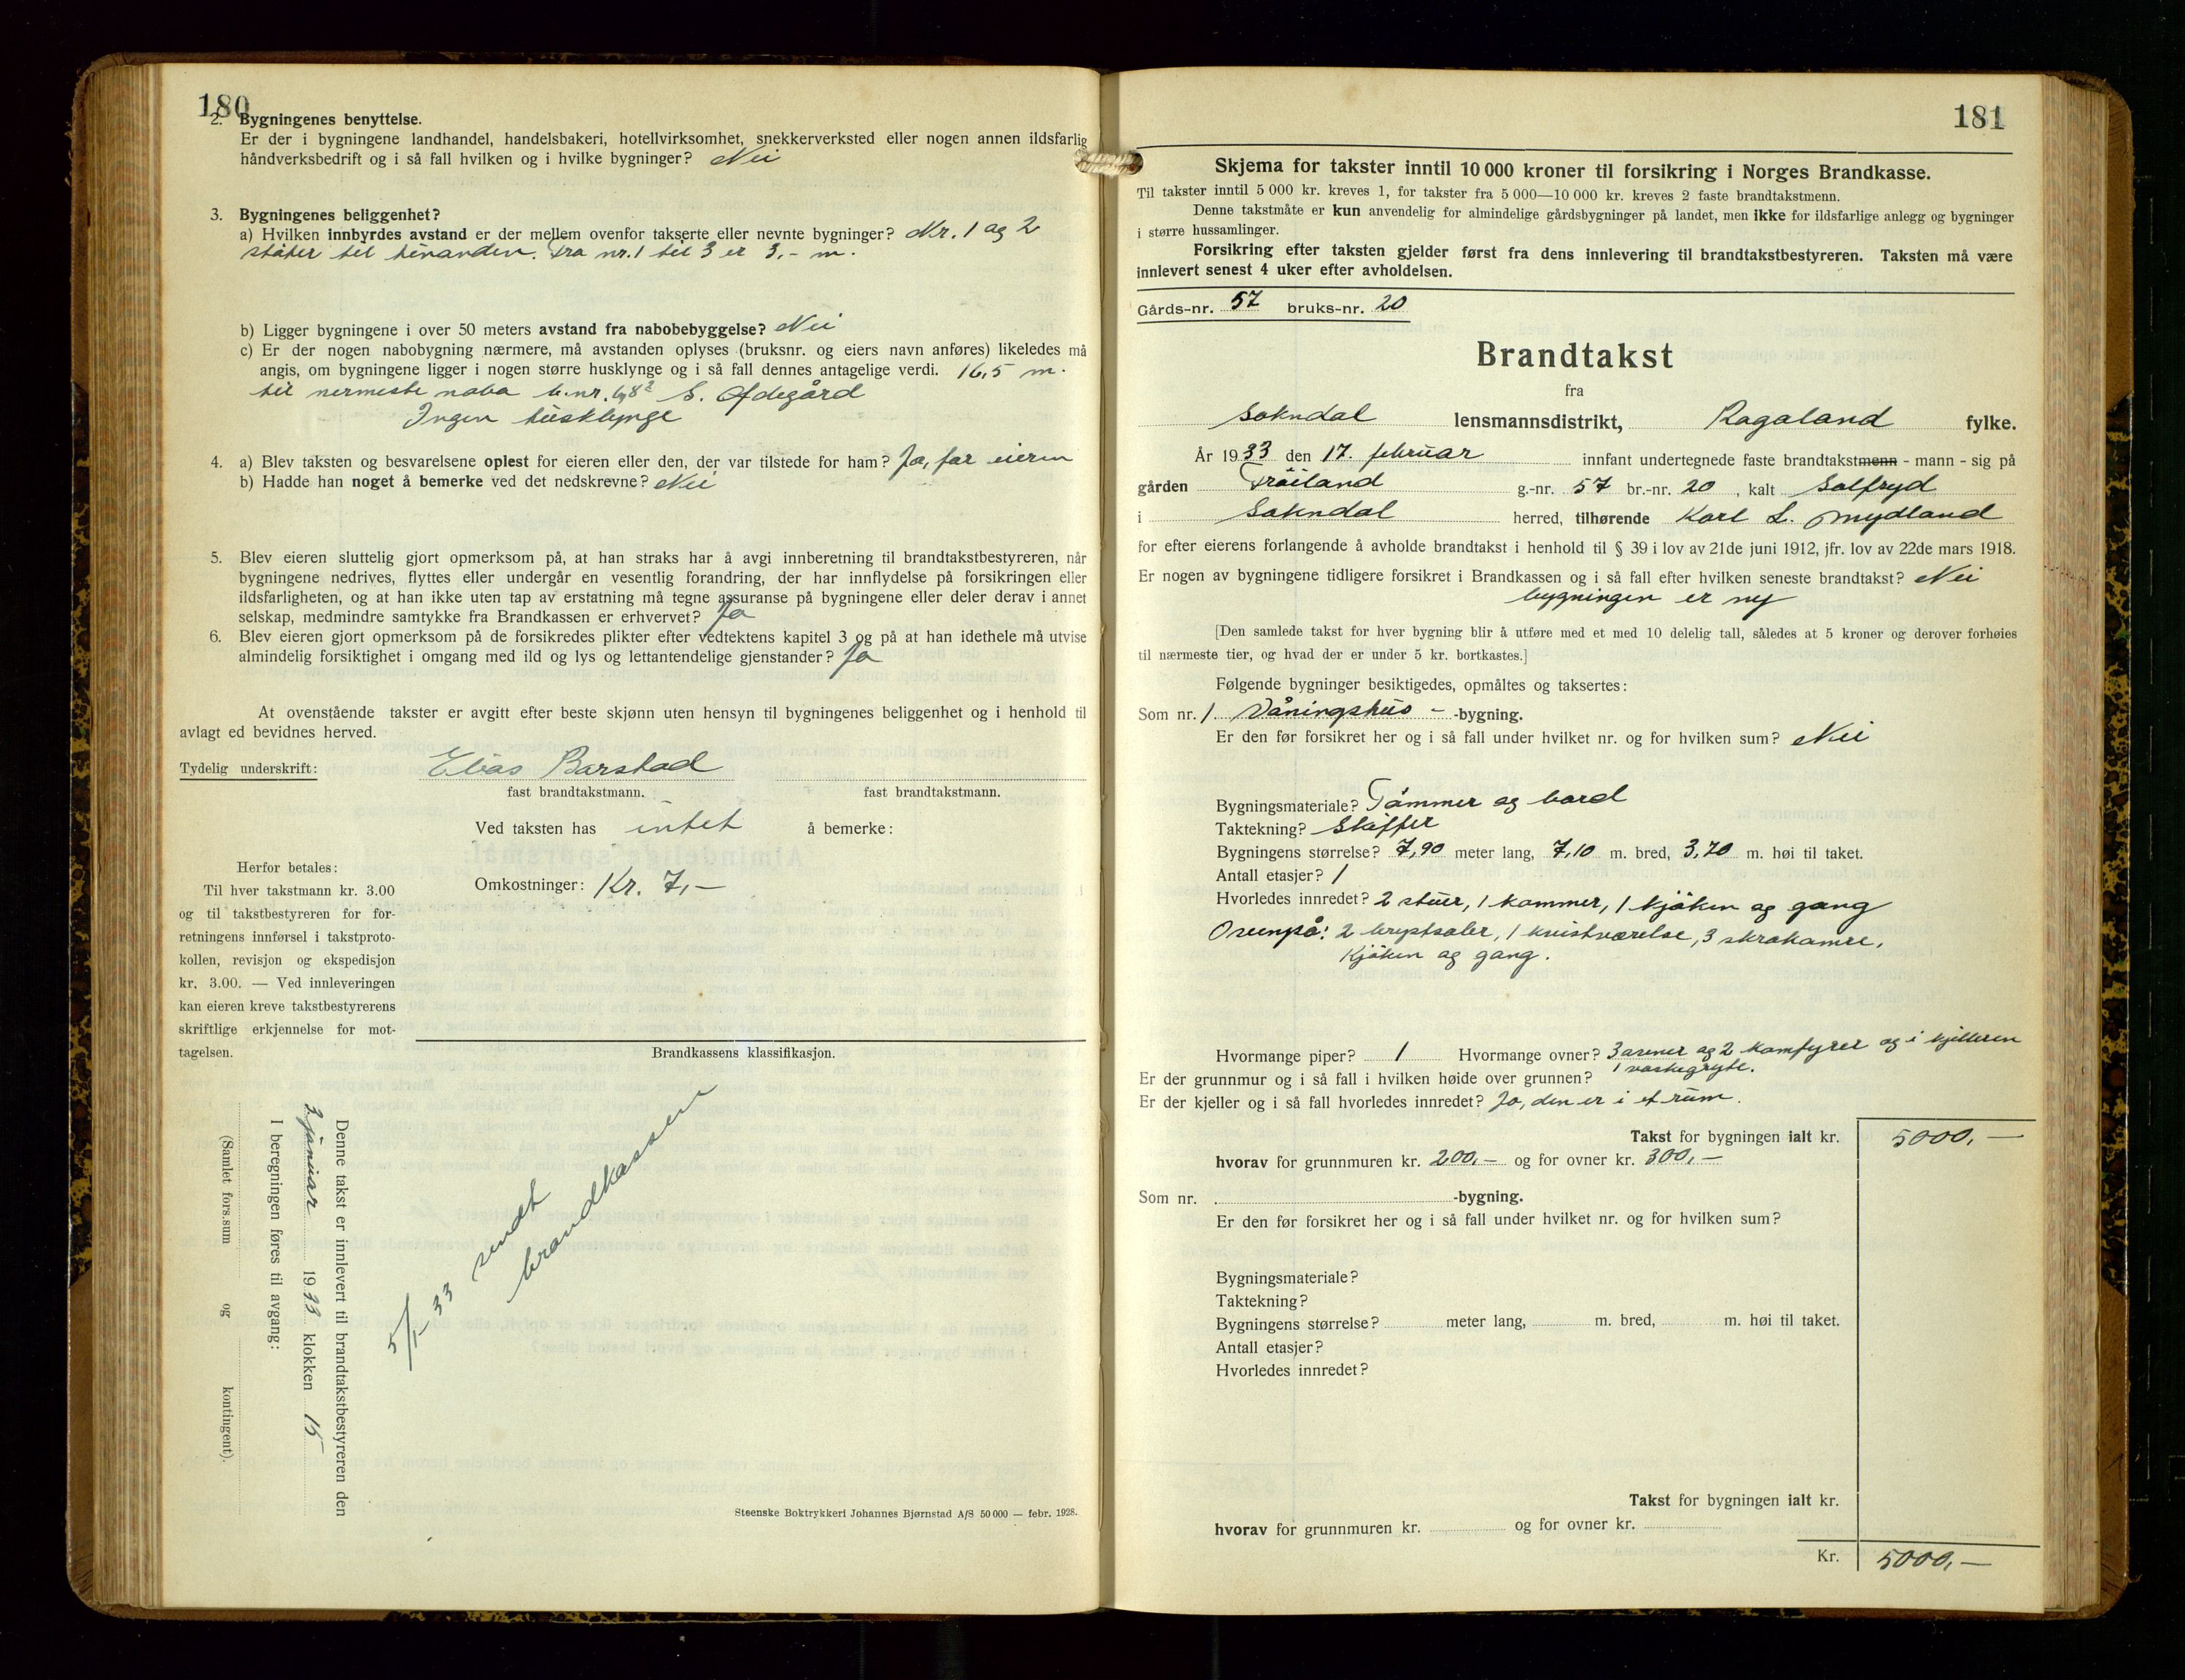 180
2. Bygningenes benyttelse.
Er der i bygningene landhandel, handelsbakeri, hotellvirksomhet, snekkerverksted eller nogen annen ildsfarlig
håndverksbedrift og i så fall hvilken og i hvilke bygninger? Nei
3. Bygningenes beliggenhet?
a) Hvilken innbyrdes avstand er der mellem ovenfor takserte eller nevnte bygninger? Nr. 1 og 2
støter til hinanden. Fra nr. 1 til 3 er 3,- m.
b) Ligger bygningene i over 50 meters avstand fra nabobebyggelse? Nei
c) Er der nogen nabobygning nærmere, må avstanden oplyses (bruksnr. og eiers navn anføres) likeledes må
angis, om bygningene ligger i nogen større husklynge og i så fall dennes antagelige verdi. 16,5 m.
til nermeste nabo b.nr. S. Ødegård
Ingen husklynge
4. a) Blev taksten og besvarelsene oplest for eieren eller den, der var tilstede for ham? Ja, for eieren
b) Hadde han noget å bemerke ved det nedskrevne? Nei
5. Blev eieren sluttelig gjort opmerksom på, at han straks har å avgi innberetning til brandtakstbestyreren, når
bygningene nedrives, flyttes eller undergår en vesentlig forandring, der har innflydelse på forsikringen eller
ildsfarligheten, og at han ikke uten tap av erstatning må tegne assuranse på bygningene eller deler derav i annet
selskap, medmindre samtykke fra Brandkassen er erhvervet? Ja
6. Blev eieren gjort opmerksom på de forsikredes plikter efter vedtektens kapitel 3 og på at han idethele må utvise
almindelig forsiktighet i omgang med ild og lys og lettantendelige gjenstander? Ja
At ovenstående takster er avgitt efter beste skjønn uten hensyn til bygningenes beliggenhet og i henhold til
avlagt ed bevidnes herved.
Tydelig underskrift: Elias Barstad
fast brandtakstmann. fast brandtakstmann.
Ved taksten has intet å bemerke:
Omkostninger: Kr. 7,-
Herfor betales:
Til hver takstmann kr. 3.00
og til takstbestyreren for for-
retningens innførsel i takstproto-
kollen, revisjon og ekspedisjon
kr. 3.00. — Ved innleveringen
kan eieren kreve takstbestyrerens
skriftlige erkjennelse for mot-
tagelsen.
Brandkassens klassifikasjon.
Denne takst er innlevert til brandtakstbestyreren den
3 januar 1933 klokken 15
I beregningen føres til avgang:
(Samlet fors.sum og kontingent).
5/1-33 sendt
brandkassen
Steenske Boktrykkeri Johannes Bjørnstad A/S 50 000 — febr. 1928.
181
Skjema for takster inntil 10 000 kroner til forsikring i Norges Brandkasse.
Til takster inntil 5 000 kr. kreves 1, for takster fra 5 000—10 000 kr. kreves 2 faste brandtakstmenn.
Denne takstmåte er kun anvendelig for almindelige gårdsbygninger på landet, men ikke for ildsfarlige anlegg og bygninger
i større hussamlinger.
Forsikring efter taksten gjelder først fra dens innlevering til brandtakstbestyreren. Taksten må være
innlevert senest 4 uker efter avholdelsen.
Gårds-nr. 57 bruks-nr. 20
Brandtakst
fra
Sokndal lensmannsdistrikt, Rogaland fylke.
År 1933 den 17. februar innfant undertegnede faste brandtakstmenn - mann - sig på
gården Frøiland g.-nr. 57 br.-nr. 20, kalt Solfryd
i Sokndal herred, tilhørende Karl L. Mydland
for efter eierens forlangende å avholde brandtakst i henhold til § 39 i lov av 21de juni 1912, jfr. lov av 22de mars 1918.
Er nogen av bygningene tidligere forsikret i Brandkassen og i så fall efter hvilken seneste brandtakst? Nei
bygningen er ny
[Den samlede takst for hver bygning blir å utføre med et med 10 delelig tall, således at 5 kroner og derover forhøies
til nærmeste tier, og hvad der er under 5 kr. bortkastes.]
Følgende bygninger besiktigedes, opmåltes og taksertes:
Som nr. 1 Våningshus - -bygning.
Er den før forsikret her og i så fall under hvilket nr. og for hvilken sum? Nei
Bygningsmateriale? Tømmer og bord
Taktekning? Skiffer
Bygningens størrelse? 7,90 meter lang, 7,10 m. bred, 3,70 m. høi til taket.
Antall etasjer? 1
Hvorledes innredet? 2 stuer, 1 kammer, 1 kjøken og gang
Ovenpå: 2 brystsaler, 1 kvistværelse, 3 skrokamre,
Kjøken og gang.
Hvormange piper? 1 Hvormange ovner? 3 ovner og 2 komfyrer og i kjelleren
1 vaskegryte.
Er der grunnmur og i så fall i hvilken høide over grunnen?
Er der kjeller og i så fall hvorledes innredet? Ja, den er i et rum.
Takst for bygningen ialt kr. 5000,—
hvorav for grunnmuren kr. 200,— og for ovner kr. 300,—
Som nr. -bygning.
Er den før forsikret her og i så fall under hvilket nr. og for hvilken sum?
Bygningsmateriale?
Taktekning?
Bygningens størrelse? meter lang, m. bred, m. høi til taket.
Antall etasjer?
Hvorledes innredet?
Takst for bygningen ialt kr.
hvorav for grunnmuren kr. og for ovner kr.
Kr. 5000,—